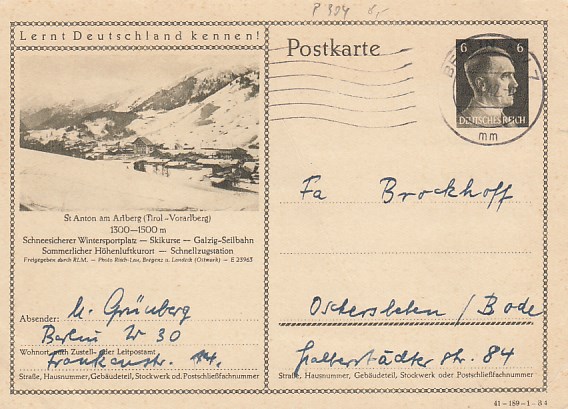 P 304 6,-
Lernt Deutschland kennen!
Postkarte
6 6
DEUTSCHES REICH
mm
St Anton am Arlberg (Tirol-Vorarlberg)
1300—1500 m
Schneesicherer Wintersportplatz — Skikurse — Galzig-Seilbahn
Sommerlicher Höhenluftkurort — Schnellzugstation
Freigegeben durch RLM. — Photo Risch-Lau, Bregenz u. Landeck (Ostmark) — E 23963
Fa Brockhoff
Absender: M. Grünberg
Berlin W 30
Wohnort, auch Zustell- oder Leitpostamt
Frankenstr. 14.
Straße, Hausnummer, Gebäudeteil, Stockwerk od. Postschließfachnummer
Oschersleben / Bode
Halberstädter Str. 84
Straße, Hausnummer, Gebäudeteil, Stockwerk oder Postschließfachnummer
41-159-1-B4